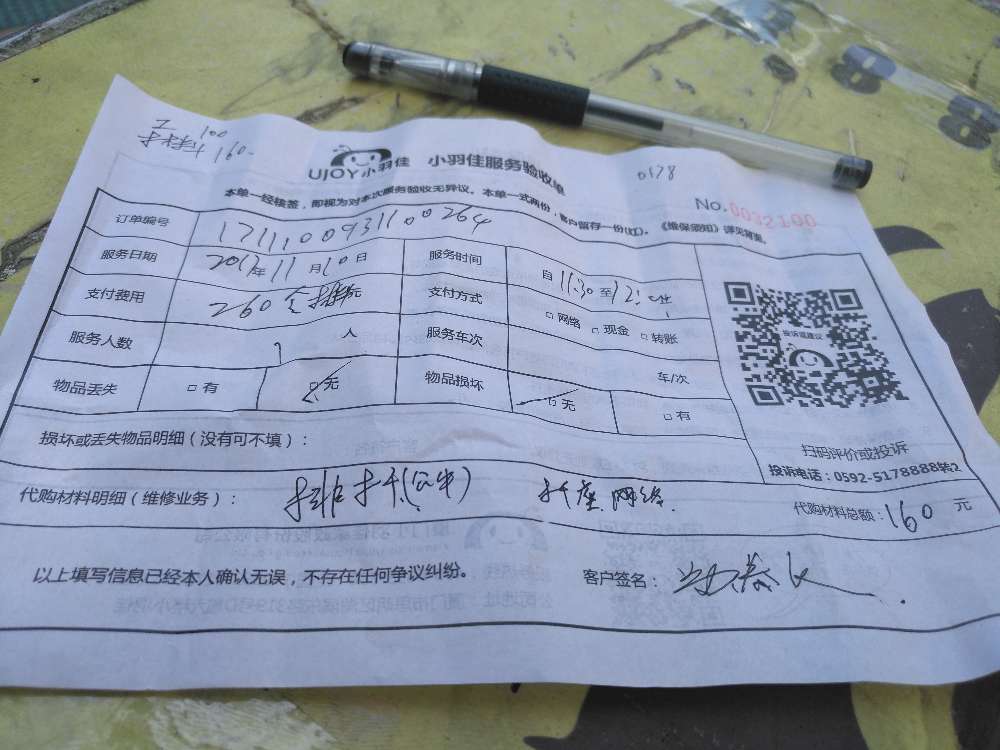 工 100
材料 160
UJOY小羽佳 小羽佳服务验收单
0178
本单一经核签，即视为对本次服务验收无异议。本单一式两份，客户留存一份(红)。《维保须知》详见背面。
No.0032100
订单编号 171110093110 0264
服务日期 2017年11月10日 服务时间 自11:30至12:00止
支付费用 260 元 支付方式 □网络 □现金 □转账
服务人数 1 人 服务车次 车/次
物品丢失 □有 □无 物品损坏 □无 □有
投诉或建议
扫码评价或投诉
投诉电话：0592-5178888转2
损坏或丢失物品明细（没有可不填）：
代购材料明细（维修业务）： 排插(公牛) 插座 网络 代购材料总额：160 元
以上填写信息已经本人确认无误，不存在任何争议纠纷。 客户签名：